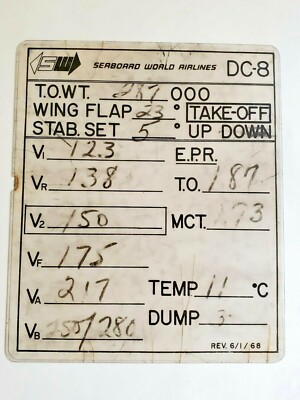 SW SEABOARD WORLD AIRLINES DC-8
T.O.WT. 287 000
WING FLAP 23° TAKE-OFF
STAB. SET 5° UP DOWN
V1 123 E.P.R.
VR 138 T.O. 187
V2 150 MCT. 173
VF 175
VA 217 TEMP 11 °C
VB 280 DUMP 3
REV. 6/1/68